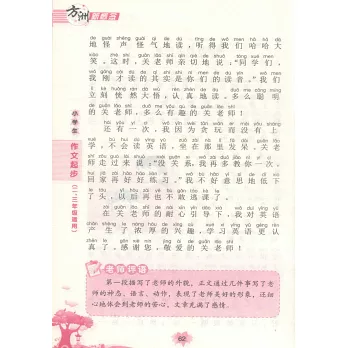 方洲新概念
地怪声怪气地读,听得我们哈哈大
笑。这时,关老师亲切地说:“同学们,
刚才我读的其实是你们的读音。”我们
立刻恍然大悟,认真地读。多么聪明
的关老师,多么有趣的关老师!
还有一次,我因为贪玩而没有上
学,不会读英语,坐在那里发呆,关老
师走过来说:“没关系,我再多教你一次。
回家再好好练习。”我不好意思地低下
了头,以后再也不敢逃课了。
在关老师的耐心引导下,我对英语
产生了浓厚的兴趣,学习英语更认
真了,感谢您,敬爱的关老师!
小学生
作文起步
(二、三年级适用)
老师评语
第一段描写了老师的外貌,正文通过几件事写了老
师的神态、语言、动作,表现了老师美好的形象,还细
心地体会到老师的苦心,文章充满了感情。
62